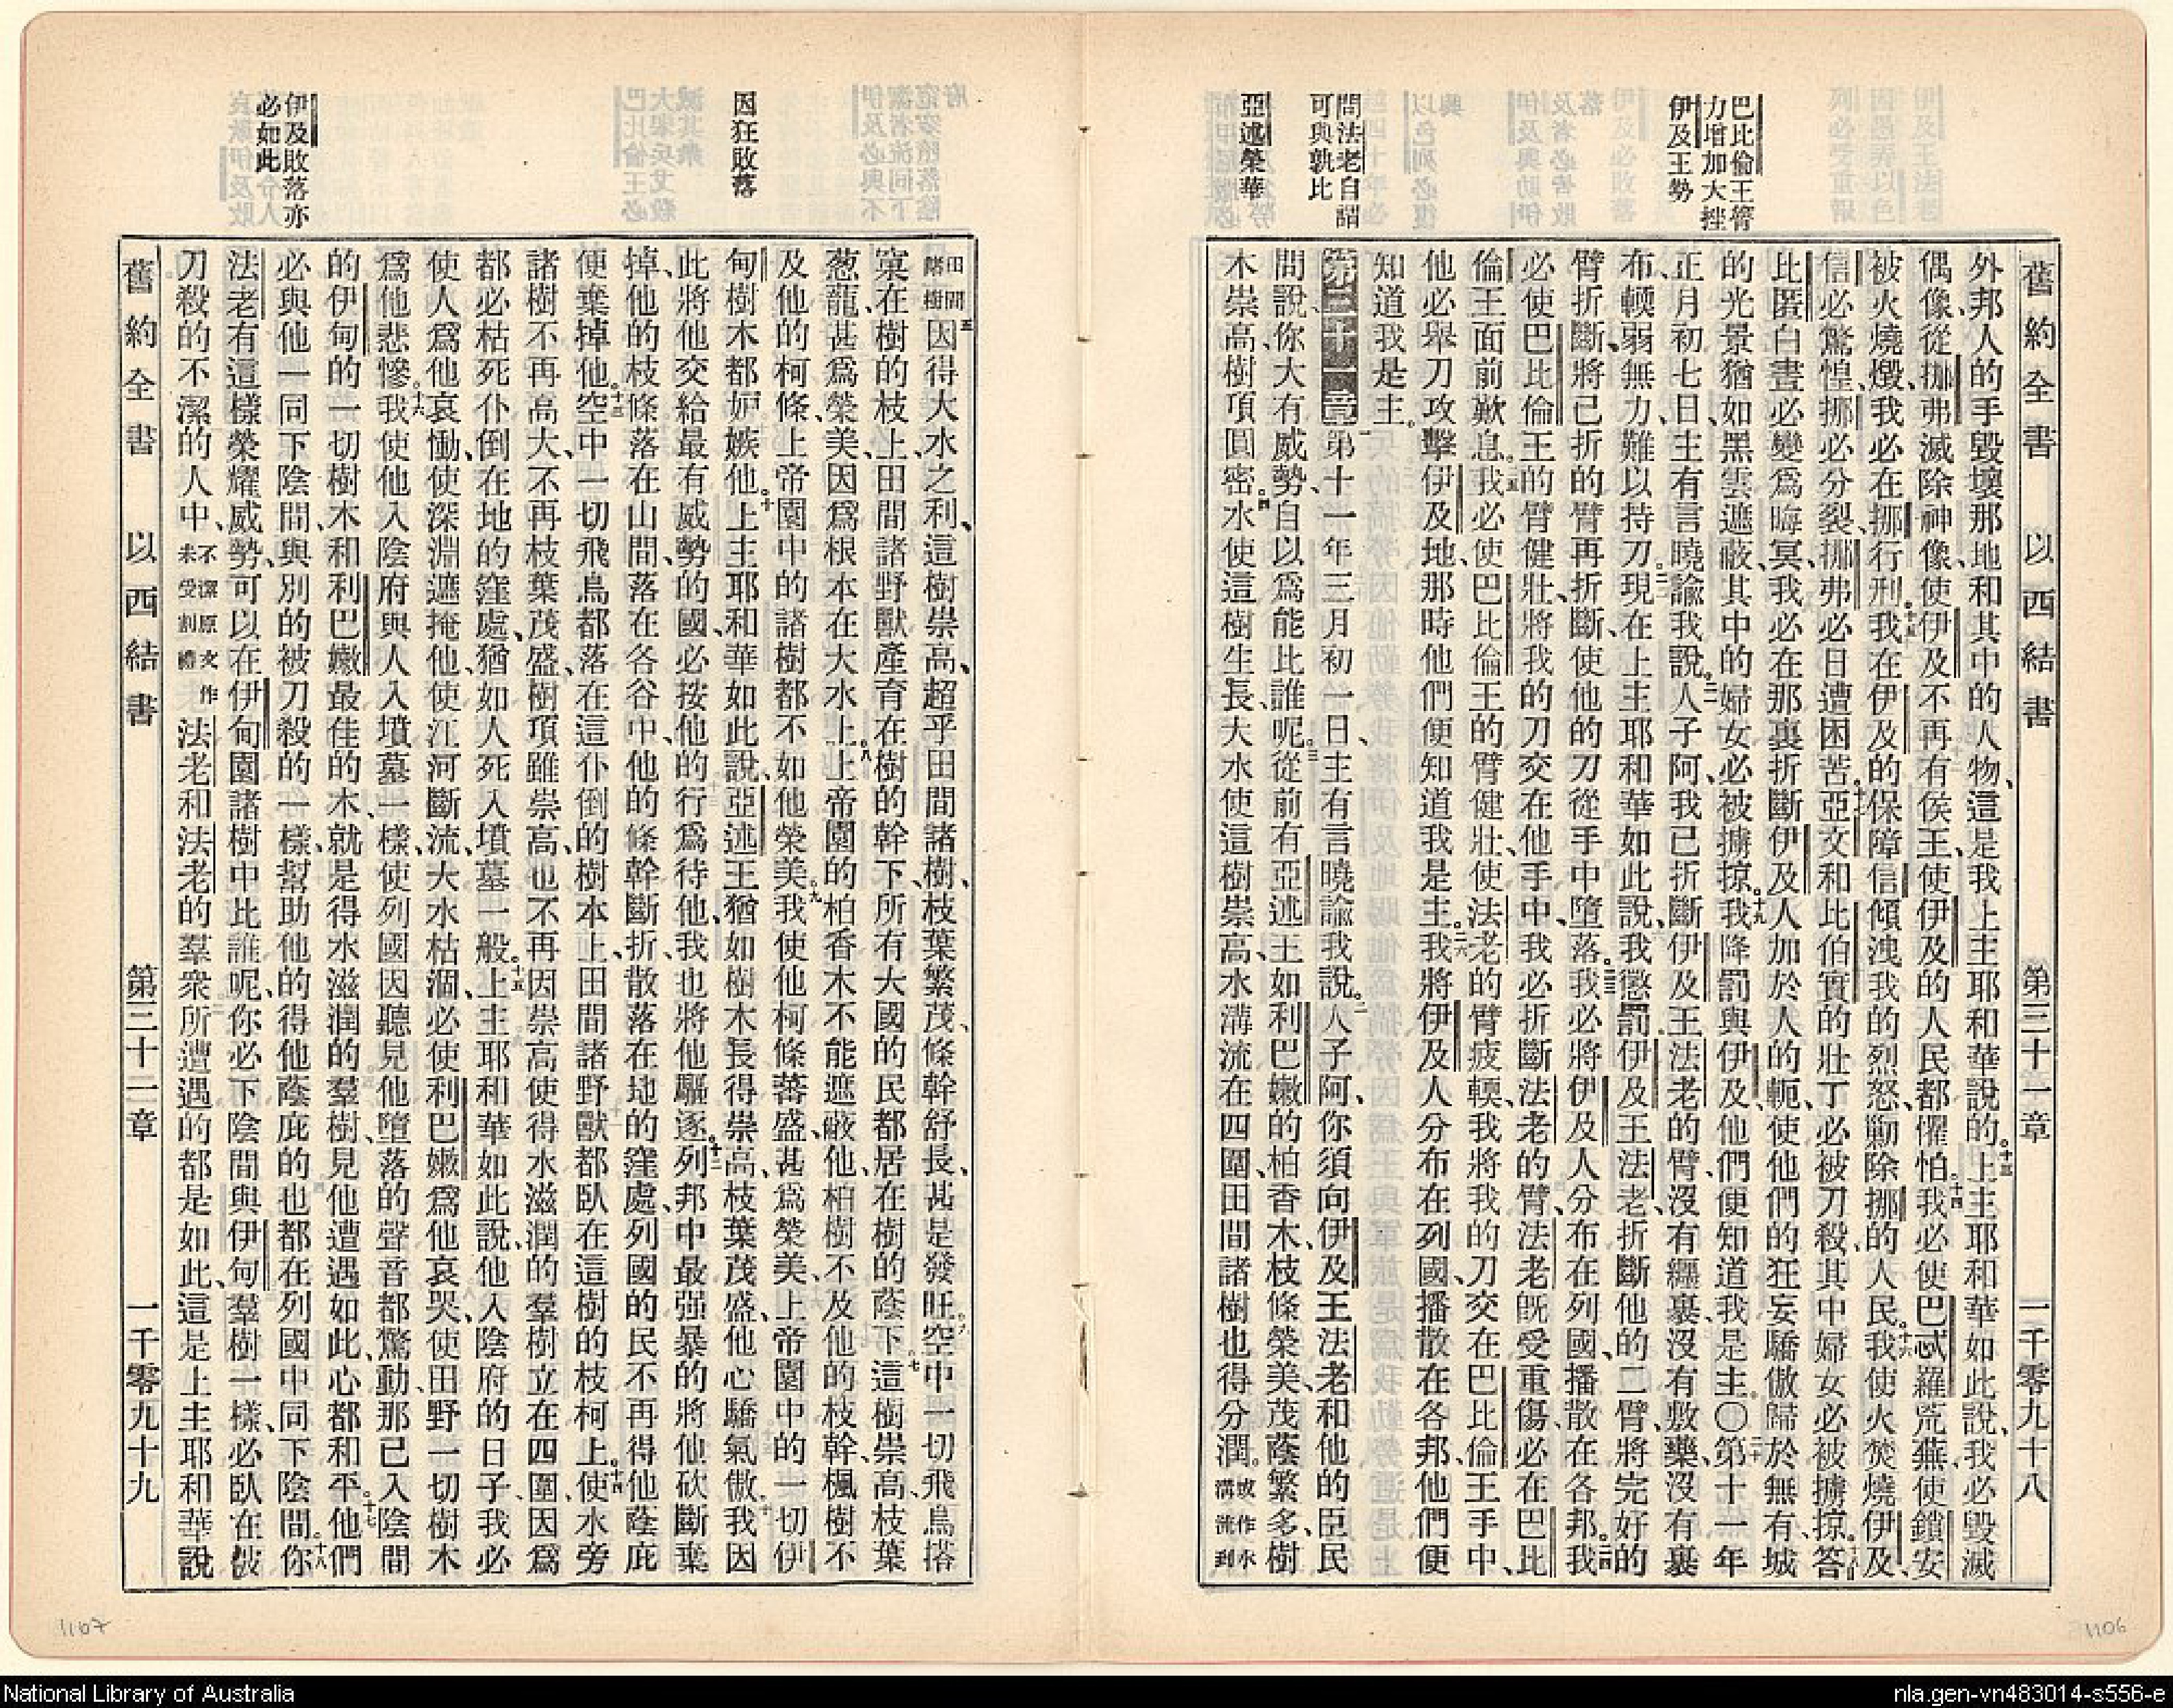 舊約全書 以西結書 第三十一章 一千零九十八
巴比倫王膂
力增加大挫
伊及王勢
問法老自謂
可與孰比
亞述榮華
外邦人的手毀壞那地和其中的人物、這是我上主耶和華說的。十三上主耶和華如此說、我必毀滅
偶像、從挪弗滅除神像、使伊及不再有侯王、使伊及的人民都懼怕。十四我必使巴忒羅荒蕪、使鎖安
被火燒燬、我必在挪行刑。十五我在伊及的保障信傾洩我的烈怒、勦除挪的人民。十六我使火焚燒伊及、
信必驚惶、挪必分裂、挪弗必日遭困苦。十七亞文和比伯實的壯丁必被刀殺、其中婦女必被擄掠。十八答
比匿白晝必變爲晦冥、我必在那裏折斷伊及人加於人的軛、使他們的狂妄驕傲歸於無有、城
的光景猶如黑雲遮蔽、其中的婦女必被擄掠。十九我降罰與伊及、他們便知道我是主。〇二十第十一年
正月初七日、主有言曉諭我說。二一人子阿、我已折斷伊及王法老的臂、沒有纏裹、沒有敷藥、沒有裹
布、輭弱無力、難以持刀。二二現在上主耶和華如此說、我懲罰伊及王法老、折斷他的二臂、將完好的
臂折斷、將已折的臂再折斷、使他的刀從手中墮落。二三我必將伊及人分布在列國、播散在各邦。二四我
必使巴比倫王的臂健壯、將我的刀交在他手中、我必折斷法老的臂、法老旣受重傷、必在巴比
倫王面前歎息。二五我必使巴比倫王的臂健壯、使法老的臂疲輭、我將我的刀交在巴比倫王手中、
他必舉刀攻擊伊及地、那時他們便知道我是主。二六我將伊及人分布在列國、播散在各邦、他們便
知道我是主。
第三十一章 一第十一年三月初一日、主有言曉諭我說。二人子阿、你須向伊及王法老和他的臣民
問說、你大有威勢、自以爲能比誰呢。三從前有亞述王如利巴嫩的柏香木、枝條榮美、茂蔭繁多、樹
木崇高、樹頂圓密。四水使這樹生長、大水使這樹崇高、水溝流在四圍、田間諸樹也得分潤。或作水溝流到
舊約全書 以西結書 第三十二章 一千零九十九
因狂敗落
伊及敗落亦
必如此
田間諸樹五因得大水之利、這樹崇高、超乎田間諸樹、枝葉繁茂、條幹舒長、甚是發旺。六空中一切飛鳥搭
窠在樹的枝上、田間諸野獸產育在樹的幹下、所有大國的民都居在樹的蔭下。七這樹崇高、枝葉
葱蘢、甚爲榮美、因爲根本在大水上。八上帝園的柏香木不能遮蔽他、柏樹不及他的枝幹、楓樹不
及他的柯條、上帝園中的諸樹都不如他榮美。九我使他柯條蕃盛、甚爲榮美、上帝園中的一切伊
甸樹木都妒嫉他。十上主耶和華如此說、亞述王猶如樹木長得崇高、枝葉茂盛、他心驕氣傲、十一我因
此將他交給最有威勢的國、必按他的行爲待他、我也將他驅逐。十二列邦中最强暴的將他砍斷棄
掉、他的枝條落在山間、落在各谷中、他的條幹斷折、散落在地的窪處、列國的民不再得他蔭庇
便棄掉他。十三空中一切飛鳥都落在這仆倒的樹本上、田間諸野獸都臥在這樹的枝柯上。十四使水旁
諸樹不再高大、不再枝葉茂盛、樹頂雖崇高、也不再因崇高使得水滋潤的羣樹立在四圍、因爲
都必枯死仆倒在地的窪處、猶如人死入墳墓一般。十五上主耶和華如此說、他入陰府的日子、我必
使人爲他哀慟、使深淵遮掩他、使江河斷流、大水枯涸、必使利巴嫩爲他哀哭、使田野一切樹木
爲他悲慘。十六我使他入陰府與人入墳墓一樣、使列國因聽見他墮落的聲音都驚動、那已入陰間
的伊甸的一切樹木和利巴嫩最佳的木、就是得水滋潤的羣樹、見他遭遇如此、心都和平。十七他們
必與他一同下陰間、與別的被刀殺的一樣、幫助他的得他蔭庇的也都在列國中同下陰間。十八你
法老有這樣榮耀威勢、可以在伊甸園諸樹中比誰呢、你必下陰間與伊甸羣樹一樣、必臥在被
刀殺的不潔的人中、不潔原文作未受割禮法老和法老的羣衆所遭遇的都是如此、這是上主耶和華說
1107
1106
National Library of Australia
nla.gen-vn483014-s556-e